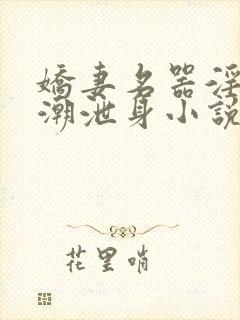 嬌妻名器淫
潮泄身小說
花里哨